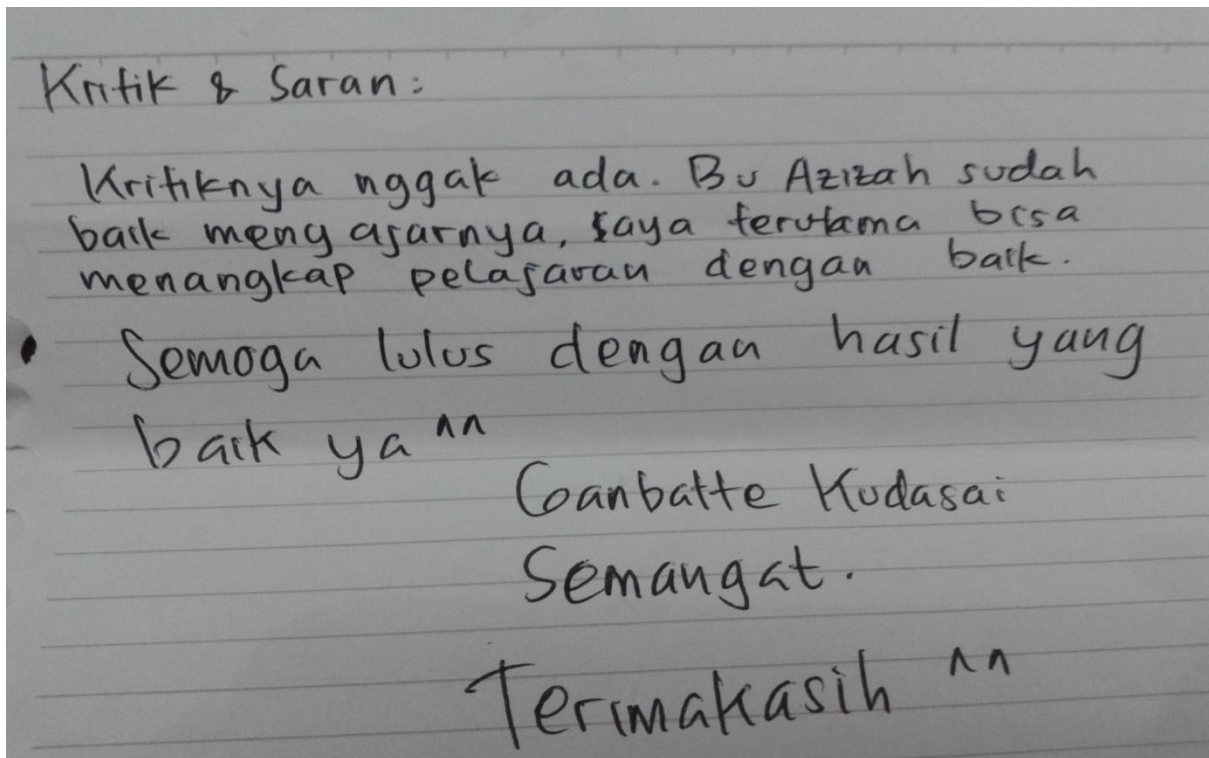 Kritik & Saran:
Kritiknya nggak ada. Bu Azizah sudah
baik mengajarnya, saya terutama bisa
menangkap pelajaran dengan baik.
Semoga lulus dengan hasil yang
baik ya ^^
Ganbatte Kudasai
Semangat.
Terimakasih ^^